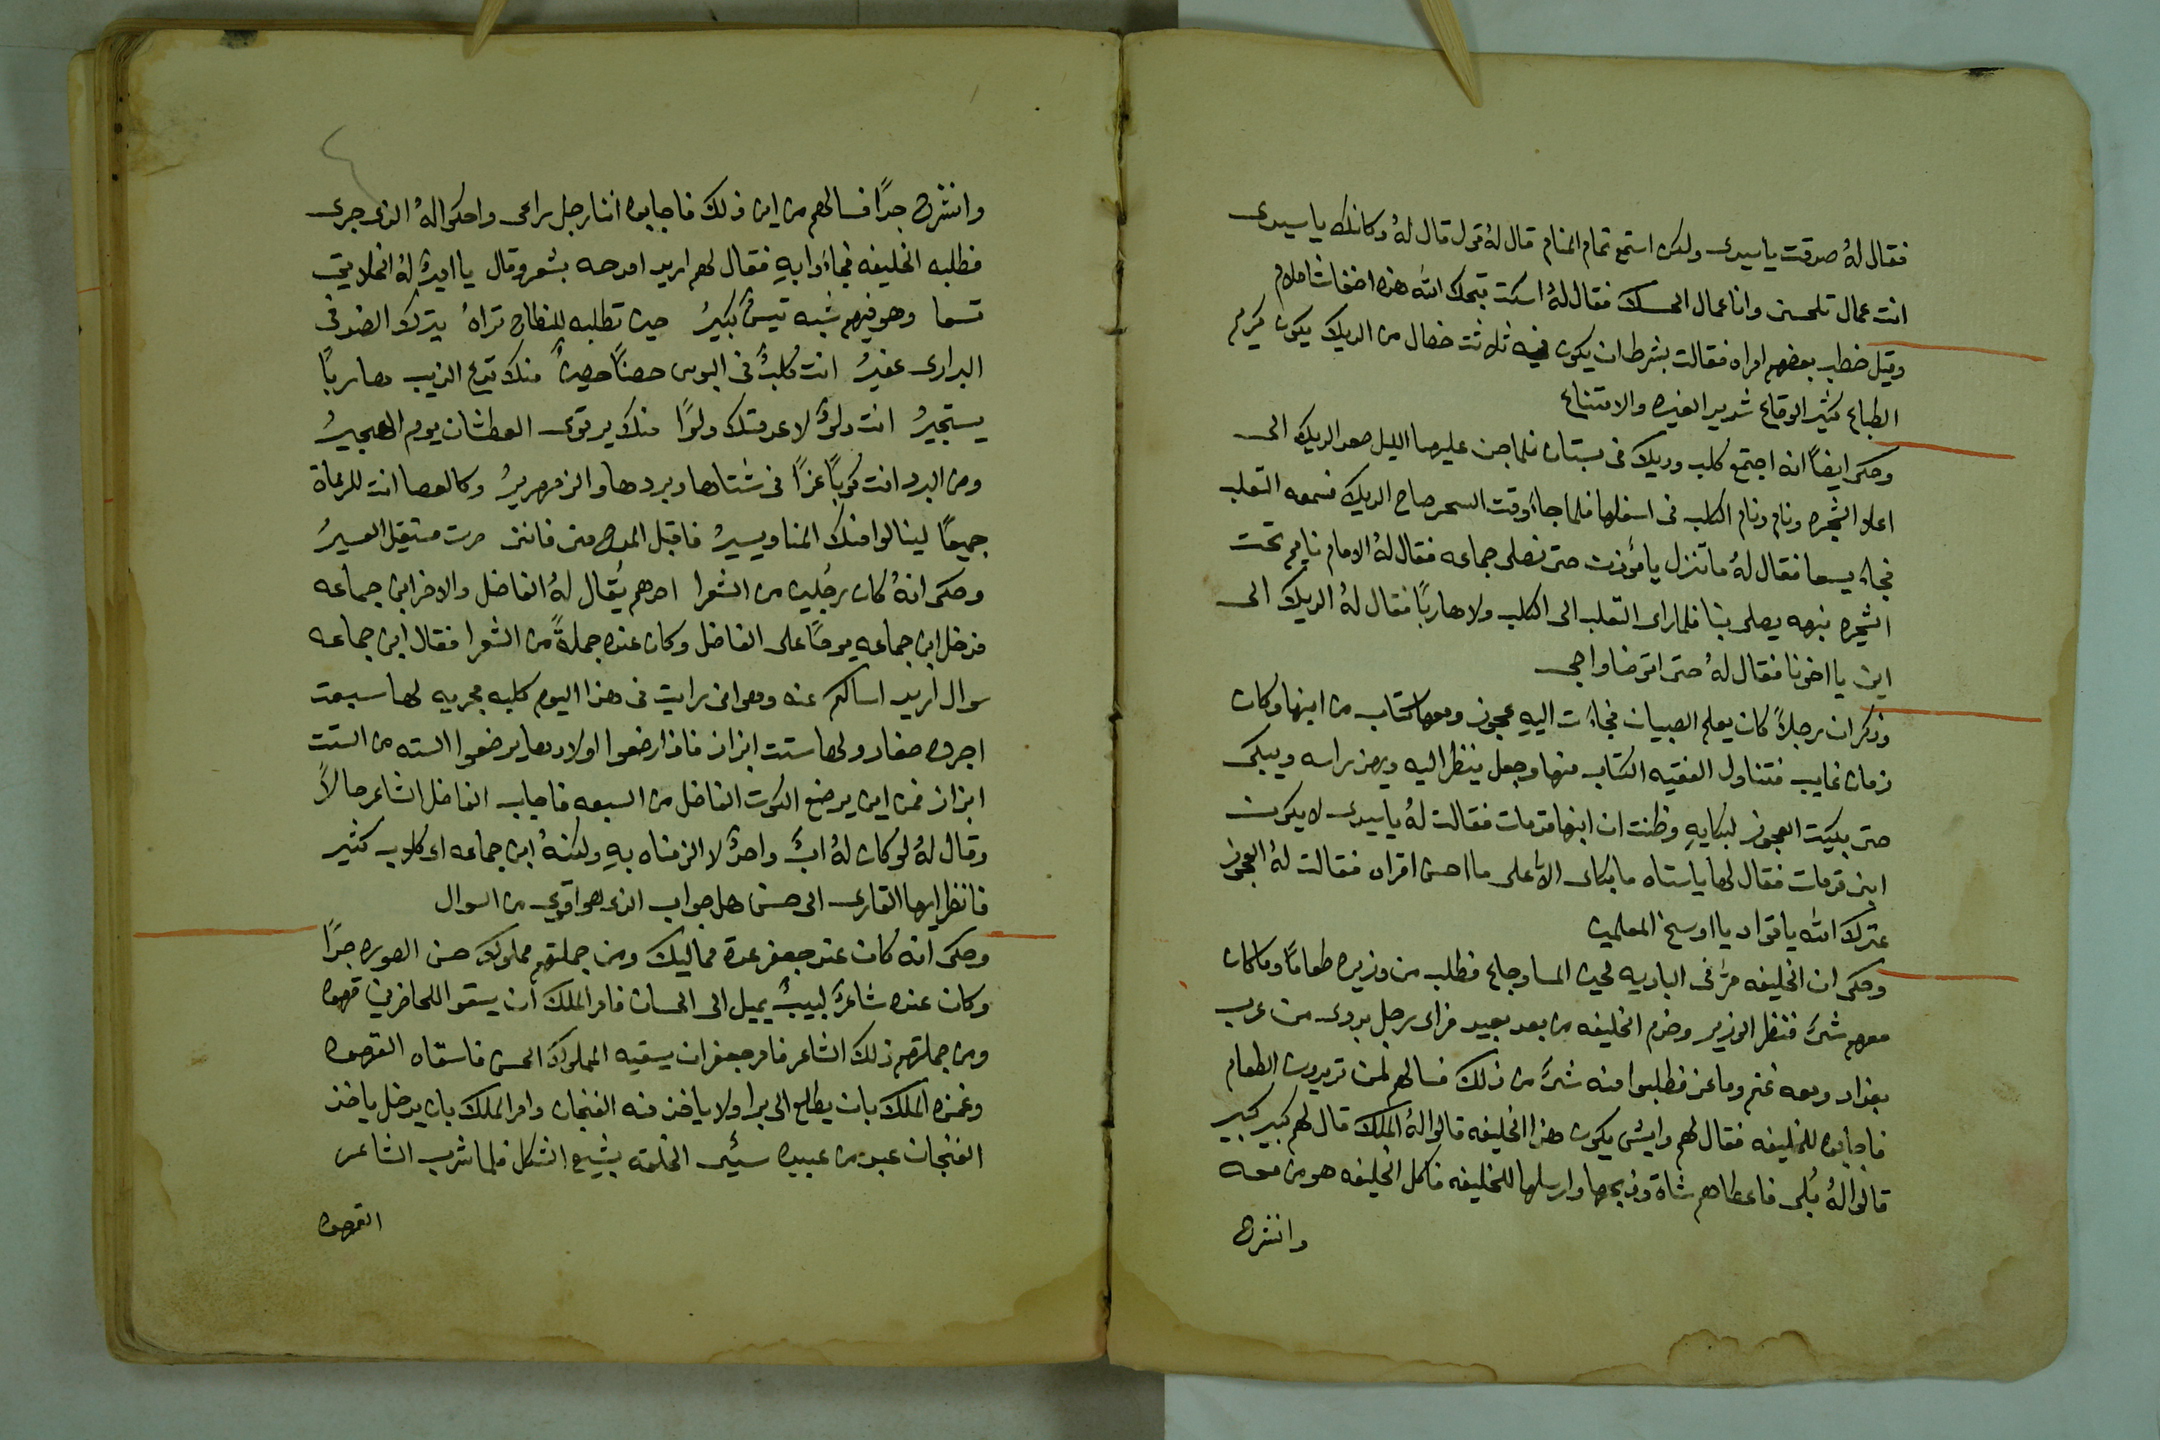 فقال لهُ صدقت يا سيدى ولكن استمع تمام المنام قال لهُ قول قال لهُ وكانك يا سيدى
انت عمال تلحسنى وانا عمال الحسك فقال لهُ اسكت قبحك الله هذه اضغاث احلام
وقيل خطب بعضهم امراه فقالت بشرط ان يكون فيه ثلاثت خصال من الديك يكون كريم
الطباع كثير الوقاع شديد الغيره والامتناع
وحكى ايضاً انه اجتمع كلب وديك فى بستان فلما جن عليهما الليل صعد الديك الى
اعلا الشجره ونام ونام الكلب فى اسفلها فلما جاء وقت السحر صاح الديك فسمعه التعلب
فجاء يسعا فقال لهُ ما تنزل يا مؤذن حتى نصلى جماعه فقال لهُ الامام نايم تحت
الشجره نبهه يصلى بنا فلما راى التعلب الى الكلب ولا هارباً فقال لهُ الديك الى
اين يا اخونا فقال لهُ حتى اتوضا واجى
وذكر ان رجلاً كان يعلم الصبيان فجاءت اليهِ عجوز ومعها كتاب من ابنها وكان
زمان غايب فتناول الفقيه الكتاب منها وجعل ينظر اليه ويهز براسه ويبكى
حتى بكيت العجوز لبكايهِ وظنت ان ابنها قد مات فقالت لهُ يا سيدى لا يكون
ابنى قد مات فقال لها يا ستاه ما بكاى الا على ما احسن اقراه فقالت لهُ العجوز
عترك الله يا قواد يا اوسخ المعلمين
وحكى ان الخليفه مرَّ فى الباديه لحين المسا وجاع فطلب من وزيره طعاماً وما كان
معهم شىَ فنظر الوزير وخدم الخليفه من بعد بعيد فراى رجل بدوى من عرب
بغداد ومعه غنم وماعز فطلبوا منه شىَ من ذلك فسالهم لمن تريدون الطعام
فاجابوه للخليفه فقال لهم وايش يكون هذا الخليفه قالوا لهُ الملك قال لهم كبير كبير
قالوا لهُ بُلى فاعطاهم شاة وذبحها وارسلها للخليفه فاكل الخليفه هو من معه
وانشرح
وانشرح جداً فسالهم من اين ذلك فاجابوه اننا رجل راعى واحكوا لهُ الذى جرى
فطلبه الخليفه فجاءوا بهِ فقال لهم اريد امدحه بشعر وقال يا امير لهُ الخلايق
تسما وهو فيهم شبه تيسٌ كبيرُ حين تطلبه للنطاح تراهُ يترك الضد فى
البرارى عفيرُ انت كلبٌ فى البوس حصناً حصينٌ منك توع الذيب صاربًا
يستجيرُ انت دلوٌ لا عدمتك دلوًا منك يرتوى العطشان يوم الهجيرُ
ومن البرد انت كوباً عزاً فى شتاها وبردها والزمهريرُ وكالعصا انت للرعاة
جميعًا لينالوا منك المنا ويسيرُ فاقبل المدح منى فاننى صرت مستقل العسيرُ
وحكى انهُ كان رجلين من الشعرا احدهم يُقال لهُ الفاضل والاخر ابن جماعه
فدخل ابن جماعه يوماً على الفاضل وكان عنده جملةً من الشعرا فقال ابن جماعه
سوال اريد اسالكم عنه وهو انى رايت فى هذا اليوم كلبه مجريه لها سبعت
اجروه صغار ولها ستت ابزاز فاذا رضعوا اولادها يرضعوا السته من الستت
ابزاز فمن اين يرضع الكوت الفاضل من السبعه فاجاب الفاضل الشاعر حالاً
وقال لهُ لو كان لهُ ابٌ واحدٌ لا الزمناه بهِ ولكنهُ ابن جماعه اى كلاب كثير
فانظر ايها القارى الى حسن هل جواب الذى هو اقوى من السوال
وحكى انه كان عند جعفر عدة مماليك ومن جملتهم مملوك حسن الصوره جداً
وكان عنده شاعرٌ لبيبٌ يميل الى الحسان فامر الملك ان يسقوا الحاضرين قهوه
ومن جملتهم ذلك الشاعر فامر جعفر ان يسقيه المملوك الحسن فاسقاه القهوه
وغمزه الملك بان يطلع الى برا ولا ياخذ منه الفنجان وامر الملك بان يدخل ياخذ
الفنجان عبد من عبيده سيّى الخلقه بشيع الشكل فلما شرب الشاعر
القهوه